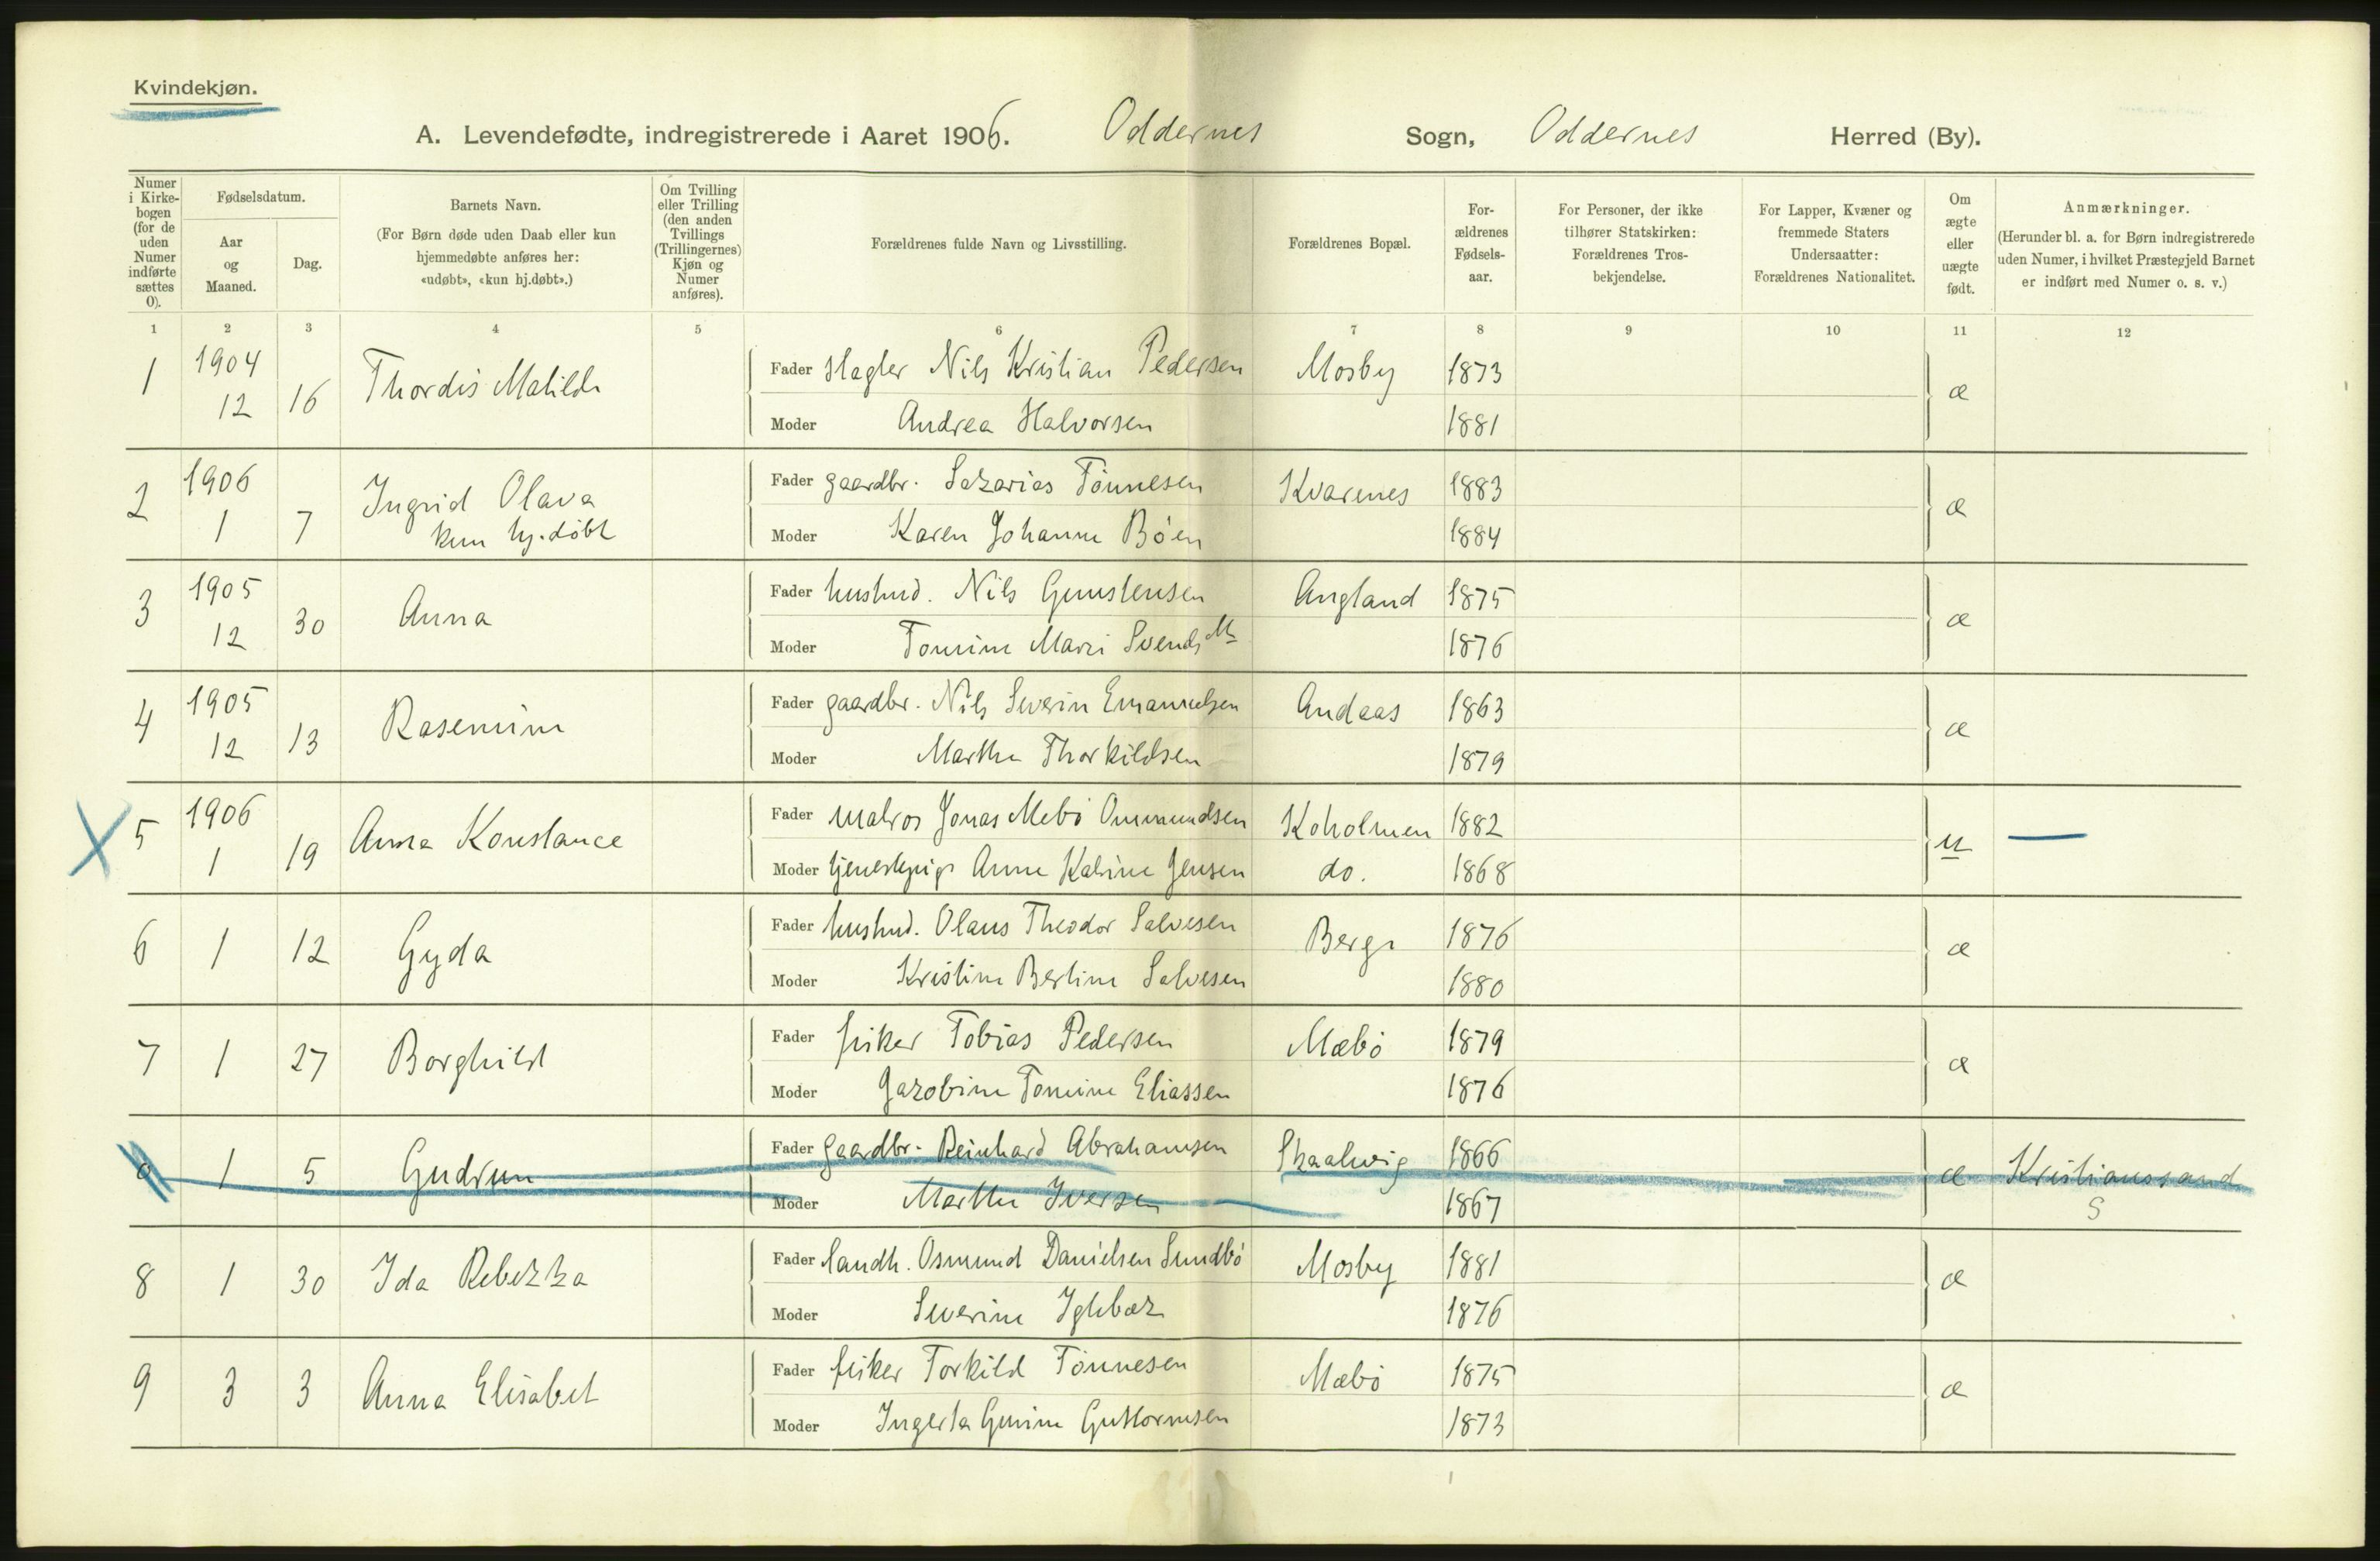 Kvindekjøn.
A. Levendefødte, indregistrerede i Aaret 1906. Oddernes Sogn, Oddernes Herred (By).
Numer i Kirkebogen (for de uden Numer indførte sættes 0).
Fødselsdatum.
Aar og Maaned.
Dag.
Barnets Navn.
(For Børn døde uden Daab eller kun
hjemmedøbte anføres her:
«udøbt», «kun hj.døbt».)
Om Tvilling eller Trilling (den anden Tvillings (Trillingernes) Kjøn og Numer anføres).
Forældrenes fulde Navn og Livsstilling.
Forældrenes Bopæl.
For-
ældrenes
Fødsels-
aar.
For Personer, der ikke
tilhører Statskirken:
Forældrenes Tros-
bekjendelse.
For Lapper, Kvæner og
fremmede Staters
Undersaatter:
Forældrenes Nationalitet.
Om
ægte
eller
uægte
født.
Anmærkninger.
(Herunder bl. a. for Børn indregistrerede
uden Numer, i hvilket Præstegjeld Barnet
er indført med Numer o. s. v.)
1 2 3 4 5 6 7 8 9 10 11 12
1 1904 12 16 Thordis Matilde Fader slagter Nils Kristian Pedersen Mosby 1873 æ
Moder Andrea Halvorsen 1881
2 1906 1 7 Ingrid Olava Fader gaardbr. Sakarias Tönnesen Kvarenes 1883 æ
kun hj.döbt Moder Karen Johanne Böen 1884
3 1905 12 30 Anna Fader husmd. Nils Gunstensen Augland 1875 æ
Moder Tomine Marie Svends 1876
4 1905 12 13 Rasemine Fader gaardbr. Nils Severin Emanuelsen Andaas 1863 æ
Moder Marthe Thorkildsen 1879
X 5 1906 1 19 Anna Konstance Fader matros Jonas Mebö Ommundsen Koholmen 1882 u —
Moder tjenestepige Anne Katrine Jensen do. 1868
6 1 12 Gyda Fader husmd. Olaus Theodor Salvesen Berge 1876 æ
Moder Kristine Bertine Salvesen 1880
7 1 27 Borghild Fader fisker Tobias Pedersen Mæbö 1879 æ
Moder Jakobine Tomine Eliassen 1876
0 1 5 Gudrun Fader gaardbr. Reinhard Abrahamsen Skaalevig 1866 æ Kristianssand
Moder Marthe Iversen 1867 S
8 1 30 Ida Rebekka Fader landh. Osmund Danielsen Sundbö Mosby 1881 æ
Moder Severine Iglebæk 1876
9 3 3 Anna Elisabet Fader fisker Torkild Tönnesen Mæbö 1875 æ
Moder Ingerta Gurine Guttormsen 1873